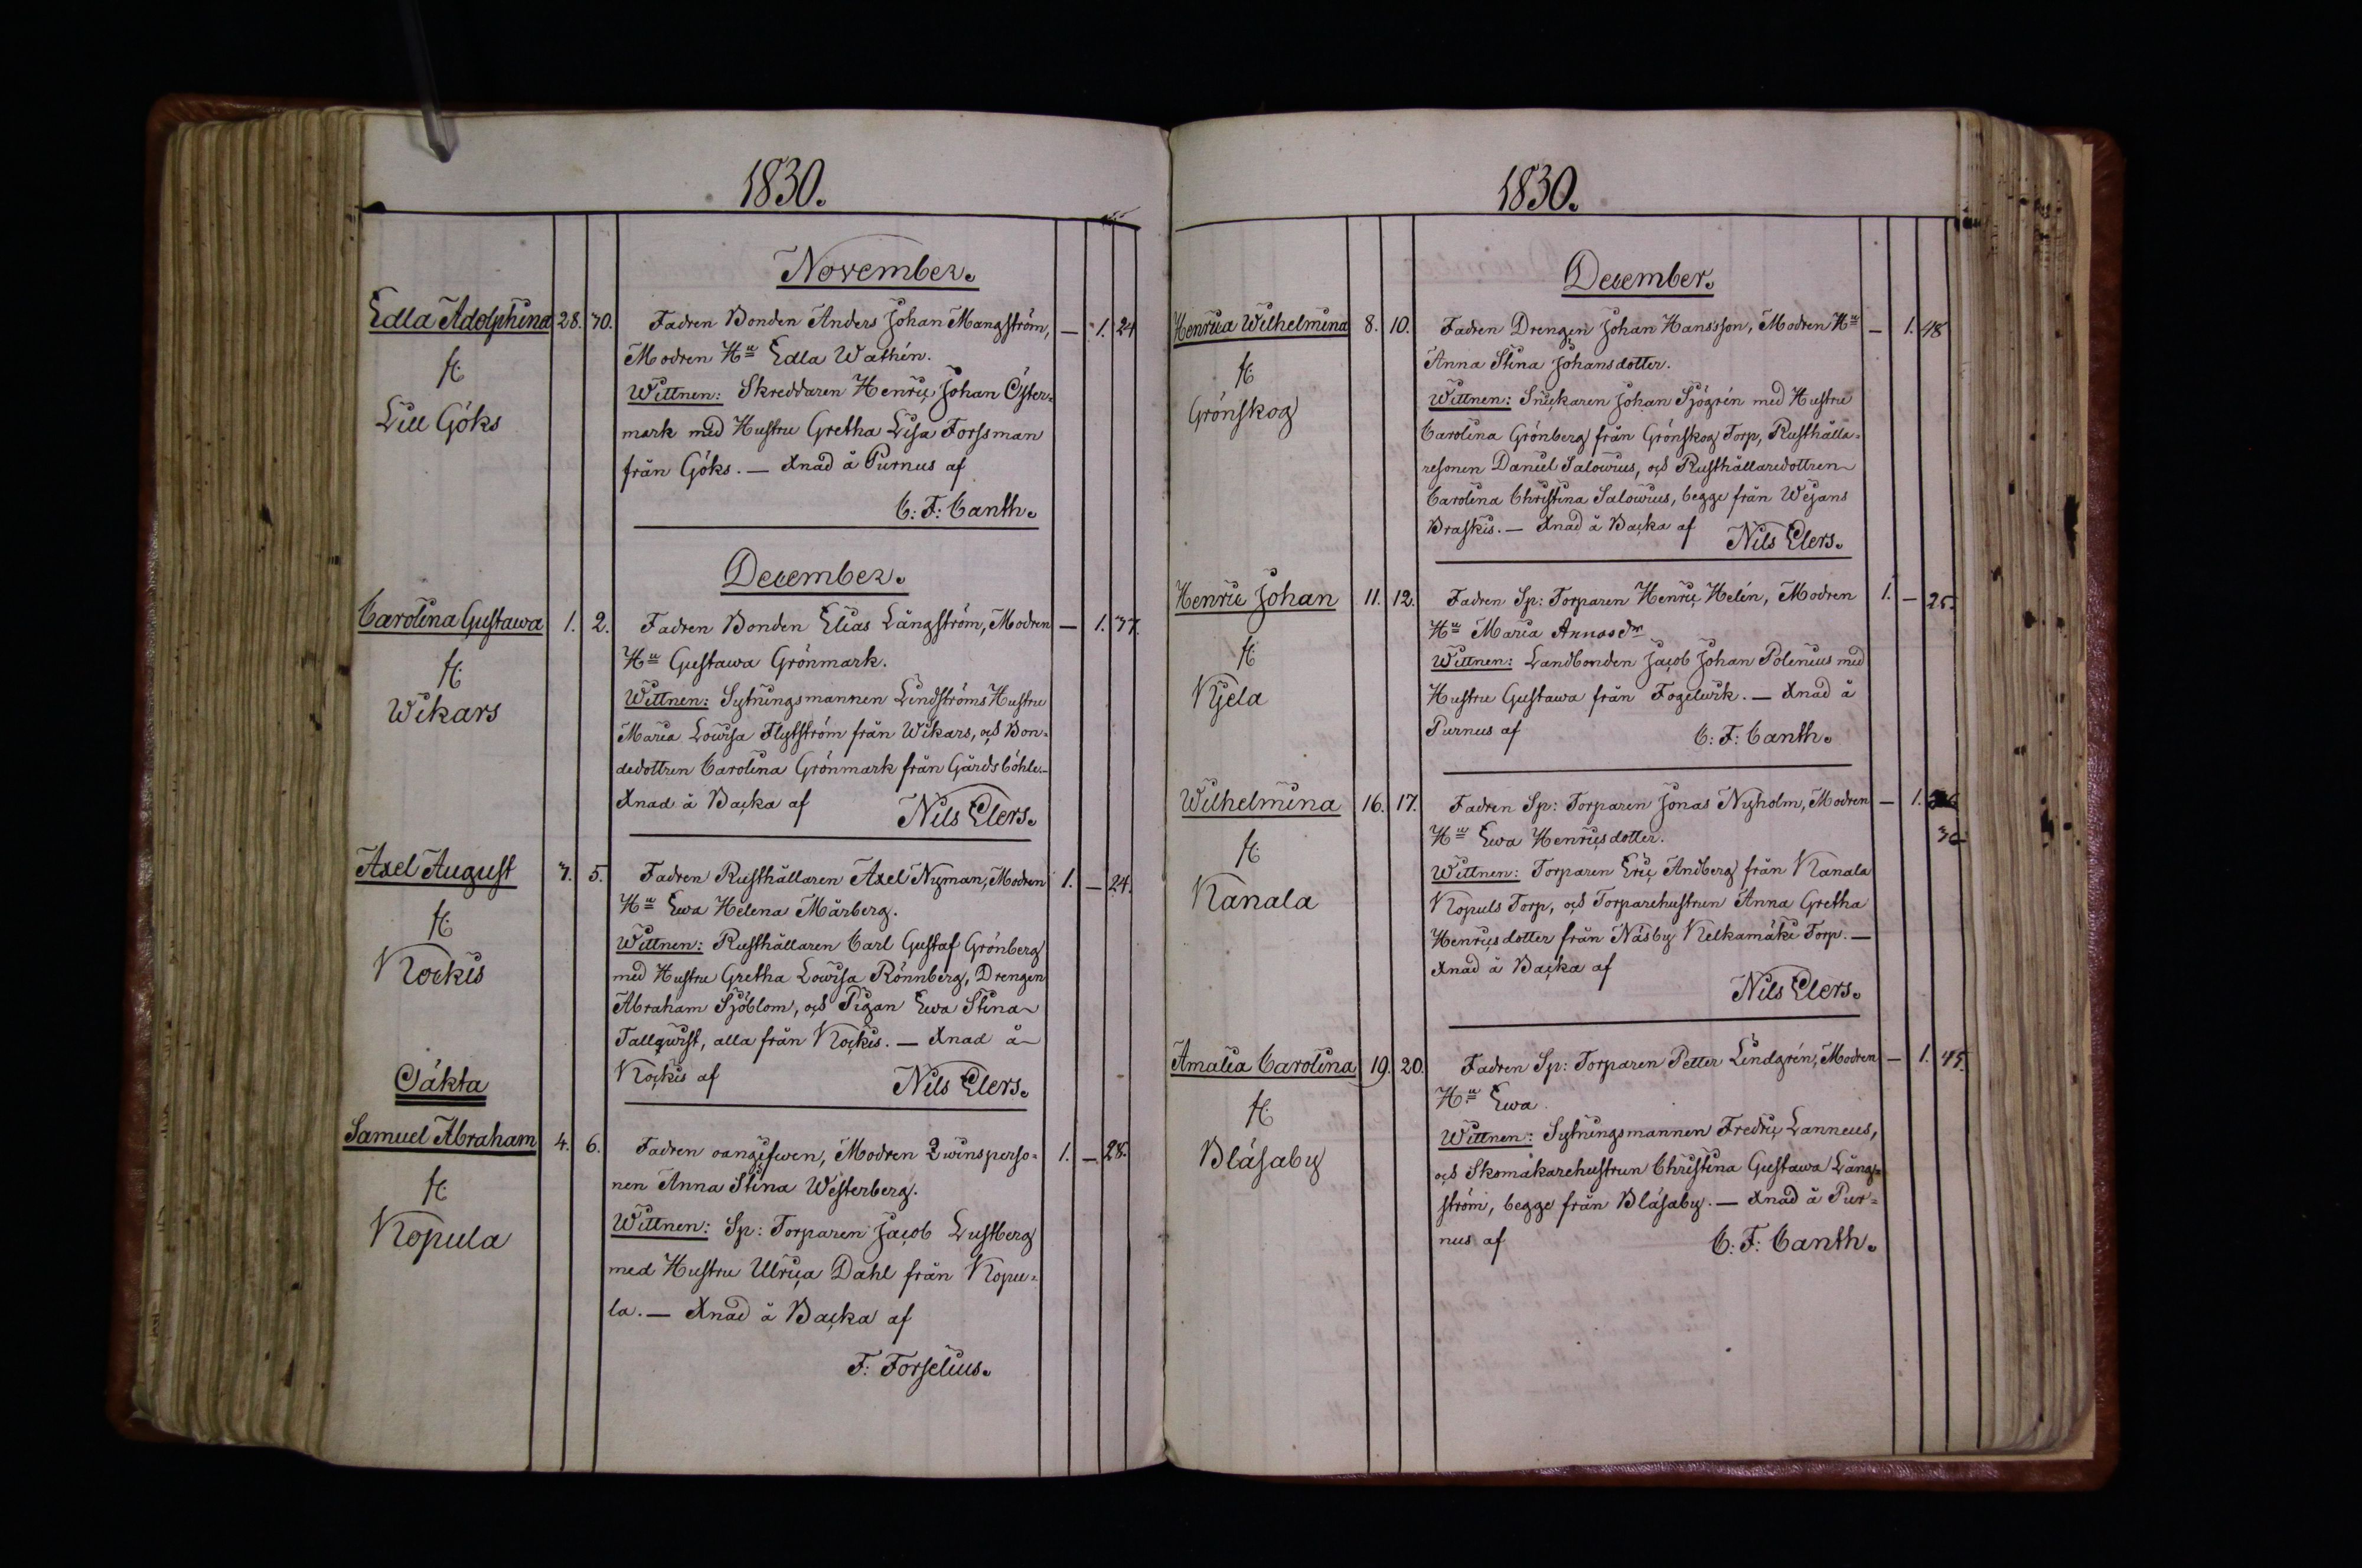 1830.
November.
Edla Adolphina 28. 30. Fadren Bonden Anders Johan Mangström, — 1. 24
Modren Hu Edla Wathén.
Lill Göks
Wittnen: Skreddaren Henric Johan Öster=
mark med Hustru Gretha Lisa Forssman
från Göks. — Xnad å Purnus af
C: F: Canth.
December.
Carolina Gustawa 1. 2. Fadren Bonden Elias Långström, Modren — 1. 37.
Hu Gustawa Grönmark.
Wikars
Wittnen: Sytningsmannen Lindströms Hustru
Maria Lowisa Flytström från Wikars, och Bon=
dedottren Carolina Grönmark från Gårdsböhle.—
Xnad å Backa af Nils Elers.
Axel August 3. 5. Fadren Rusthållaren Axel Nyman, Modren 1. — 24.
Hu Ewa Helena Mårberg.
Kockis
Wittnen: Rusthållaren Carl Gustaf Grönberg
med Hustru Gretha Lowisa Rönnberg, Drengen
Abraham Sjöblom, och Pigan Ewa Stina
Tallqwist, alla från Kockis. — Xnad å
Kockis af Nils Elers.
Oäkta
Samuel Abraham 4. 6. Fadren oangifwen, Modren Qwinsperso= 1. — 28.
nen Anna Stina Westerberg.
Kopula
Wittnen: Sp: Torparen Jacob Lustberg
med Hustru Ulrica Dahl från Kopu=
la. — Xnad å Backa af
F: Forselius.
1830.
December.
Henrica Wilhelmina 8. 10. Fadren Drengen Johan Hansson, Modren Hu — 1. 48
Anna Stina Johansdotter.
Grönskog
Wittnen: Snickaren Johan Sjögrén med Hustru
Carolina Grönberg från Grönskog Torp, Rusthålla=
resonen Daniel Salovius, och Rusthållaredottren
Carolina Christina Salovius, begge från Wejans
Braskis. — Xnad å Backa af Nils Elers.
Henric Johan 11. 12. Fadren Sp: Torparen Henric Helén, Modren 1. — 25.
Hu Maria Annasdr
Kjela
Wittnen: Landbonden Jacob Johan Polenius med
Hustru Gustawa från Fogelwik. — Xnad å
Purnus af C: F: Canth.
Wilhelmina 16. 17. Fadren Sp: Torparen Jonas Nyholm, Modren — 1.
Hu Ewa Henricsdotter. 36
Kanala
Wittnen: Torparen Eric Andberg från Kanala
Kopuls Torp, och Torparehustrun Anna Gretha
Henricsdotter från Näsby Kelkamäki Torp. —
Xnad å Backa af
Nils Elers.
Amalia Carolina 19. 20. Fadren Sp: Torparen Petter Lindgrén, Modren — 1. 45.
Hu Ewa
Bläsaby
Wittnen: Sytningsmannen Fredric Lanneus,
och Skomakarehustrun Christina Gustawa Lång=
ström, begge från Bläsaby. — Xnad å Pur=
nus af C: F: Canth.